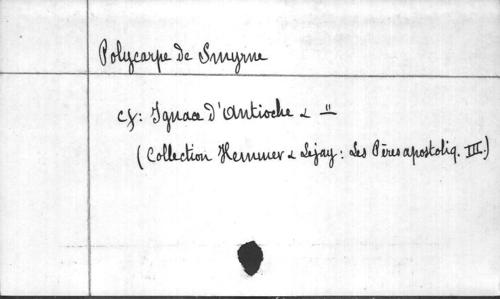 Polycarpe de Smyrne
cf: Ignace d'Antioche & "
(Collection Hemmer & Lejay: Les Pères apostoliq. III.)